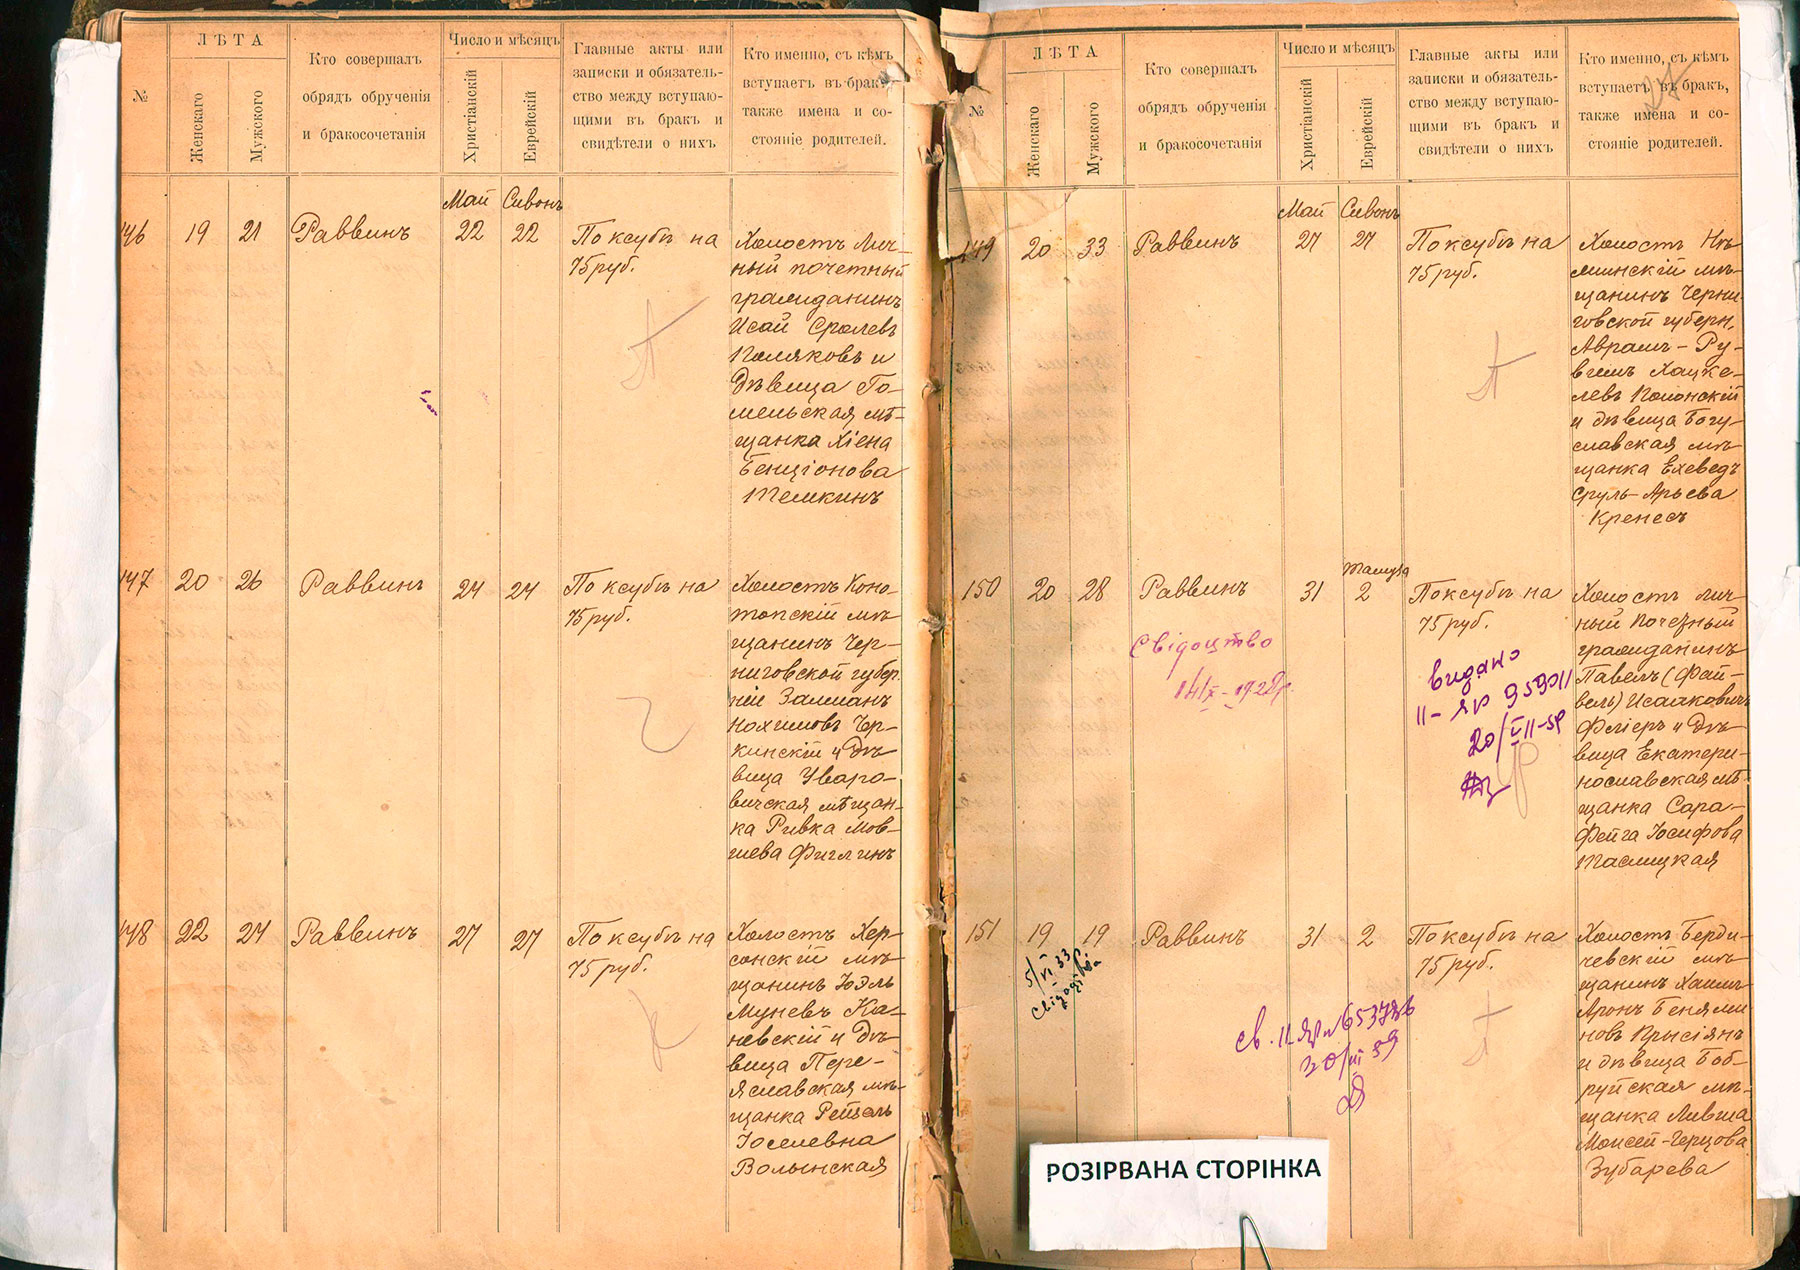 №
ЛѢТА
Женскаго
Мужского
Кто совершалъ
обрядъ обрученія
и бракосочетанія
Число и мѣсяцъ
Христіанскій
Еврейскій
Главные акты или
записки и обязатель-
ство между вступаю-
щими въ бракъ и
свидѣтели о нихъ
Кто именно, съ кѣмъ
вступаетъ въ бракъ,
также имена и со-
стояніе родителей.
Май Сивонъ
146 19 21 Раввинъ 22 22
По ксубѣ на
75 руб.
Холостъ Лич-
ный почетный
гражданинъ
Исай Сролевъ
Поляковъ и
дѣвица Го-
мельская мѣ-
щанка Хіена
Бенціонова
Темкинъ
147 20 26 Раввинъ 24 24
По ксубѣ на
75 руб.
Холостъ Коно-
топскій мѣ-
щанинъ Чер-
ниговской губер
ніи Залманъ
Нохимовъ Чер-
кинскій и дѣ-
вица Уваро-
вичская мѣщан-
ка Ривка Мов-
шева Фиглинъ
148 22 24 Раввинъ 27 27
По ксубѣ на
75 руб.
Холостъ Хер-
сонскій мѣ-
щанинъ Іоэль
Муневъ Ка-
невскій и дѣ-
вица Пере-
яславская мѣ-
щанка Рейзель
Іоселевна
Волынская
№
ЛѢТА
Женскаго
Мужского
Кто совершалъ
обрядъ обрученія
и бракосочетанія
Число и мѣсяцъ
Христіанскій
Еврейскій
Главные акты или
записки и обязатель-
ство между вступаю-
щими въ бракъ и
свидѣтели о нихъ
Кто именно, съ кѣмъ
вступаетъ въ бракъ,
также имена и со-
стояніе родителей.
Май Сивонъ
149 20 33 Раввинъ 27 27
По ксубѣ на
75 руб.
Холостъ Нѣ
жинскій мѣ-
щанинъ Черни-
говской губерн.
Аврамъ-Ру-
вимъ Хацке-
левъ Полонскій
и дѣвица Богу-
славская мѣ-
щанка Ехеведъ
Сруль-Арьева
Кренесъ
Тамуза
150 20 28 Раввинъ 31 2
По ксубѣ на
75 руб.
Холостъ лич-
ный почетный
гражданинъ
Павелъ (Фай-
вель) Исааковичъ
Фліеръ и дѣ-
вица Екатери-
нославская мѣ-
щанка Сара-
Фейга Іосифова
Таслицкая
Свідоцтво
Видано
II-ЯР 959011
151 19 19 Раввинъ 31 2
5/VI 33
Свідоцтва
По ксубѣ на
75 руб.
Холостъ Берди-
чевскій мѣ-
щанинъ Хаимъ
Аронъ Бенями
новъ Крысіянъ
и дѣвица Боб-
руйская мѣ-
щанка Ливша
Моисей-Герцова
Зубарева
РОЗІРВАНА СТОРІНКА